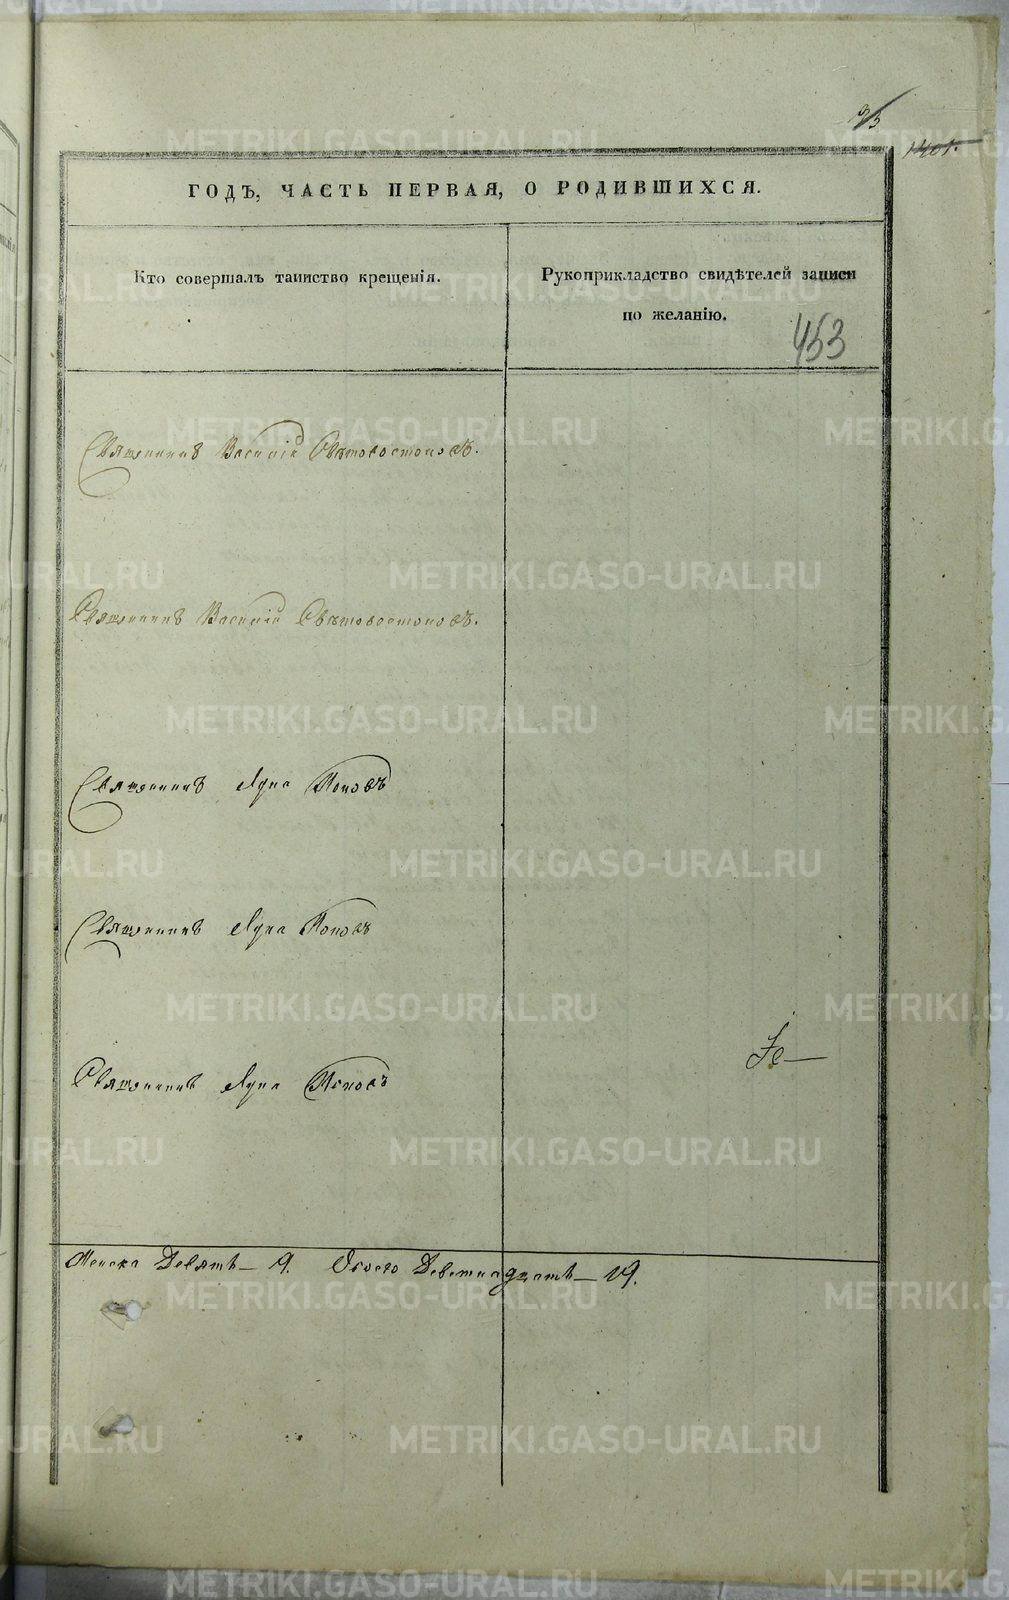 1401.
ГОДЪ, ЧАСТЬ ПЕРВАЯ, О РОДИВШИХСЯ.
Кто совершалъ таинство крещенія.
Рукоприкладство свидѣтелей записи
по желанію.
453
Священникъ Василій Свѣтовостоковъ.
Священникъ Василій Свѣтовостоковъ.
Священникъ Лука Поповъ
Священникъ Лука Поповъ
Священникъ Лука Поповъ
Женска Девять — 9. Обоего Девятнадцать — 19.
METRIKI.GASO-URAL.RU